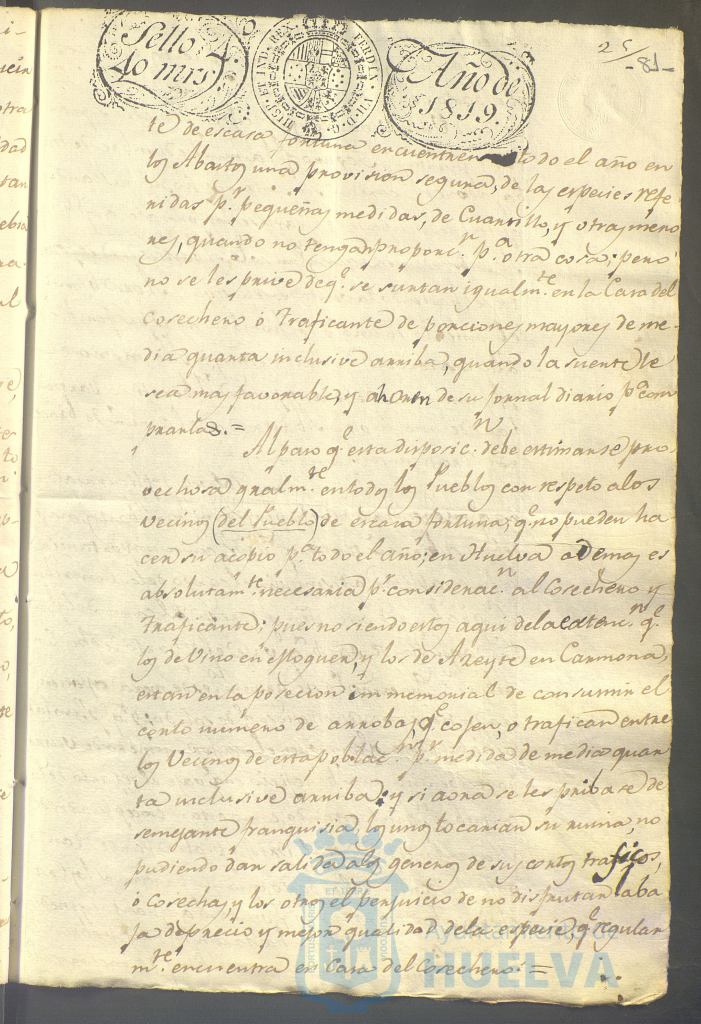 Sello 4.º
40 mrs
HISP. ET IND. REX FERDIN. VII. D. G.
Año de
1819.
25/ -81-
te de escasa fortuna encuentren todo el año en
los Abastos una provision segura, de las especies refe-
ridas p.r pequeñas medidas, de Cuartillo, y otras meno
res, quando no tengan proporc.n p.a otra cosa; pero
no se les prive de q.e se surtan igualm.te en la Casa del
Cosechero ó traficante de porciones mayores de me-
dia quarta inclusive arriba, quando la suerte le
sea mas favorable, y ahorren de su jornal diario p.a com
prarlas. =
Al paso q.e esta disposic.n debe estimarse pro-
vechosa gralm.te en todos los Pueblos con respeto a los
vecinos (del Pueblo) de escasa fortuna, q.e no pueden ha
cer su acopio p.a todo el año; en Huelva ademas es
absolutam.te necesaria p.r considerac.n al Cosechero y
traficante; pues no siendo estos aqui de la extenc.n q.e
los de Vino en Moguer, y los de Azeyte en Carmona,
estan en la posecion immemorial de consumir el
corto numero de arrobas q.e cojen, o trafican entre
los Vecinos de esta poblac.n p.r medida de media quar
ta inclusive arriba; y si aora se les pribase de
semejante franquisia, los unos tocarian su ruina, no
pudiendo dar salida a los generos de sus cortos traficos,
ó Cosechas, y los otros el perjuicio de no disfrutar la ba
ja de precio y mejor qualidad de la especie, q.e regular
m.te encuentra en Casa del Cosechero. =
Ayuntamiento de
HUELVA